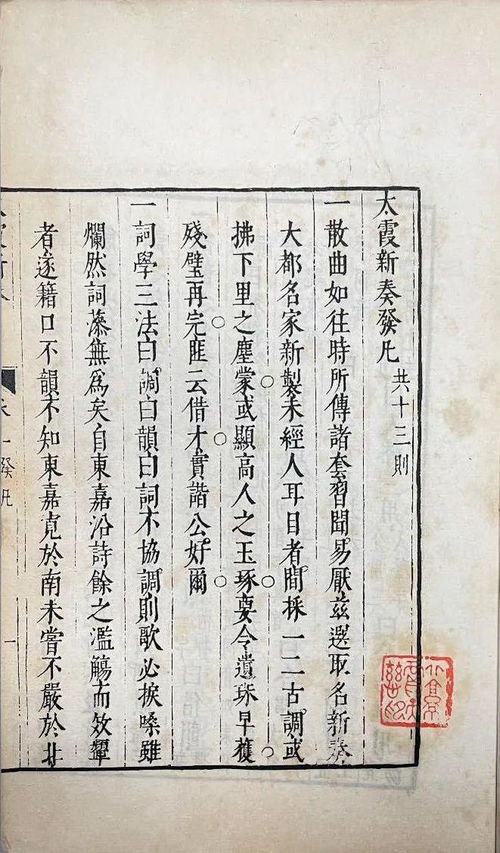 太霞新奏發凡 共十三則
一散曲如往時所傳諸套習聞易厭茲選取名新奏
大都名家新製未經人耳目者間採一二古調或
拂下里之塵蒙或顯高人之玉琢要令遺珠早獲
殘璧再完匪云借才實諧公好爾
一詞學三法曰調曰韻曰詞不協調則歌必捩嗓雖
爛然詞藻無為矣自東嘉沿詩餘之濫觴而效顰
者遂籍口不韻不知東嘉寬於南未嘗不嚴於北
發凡 一